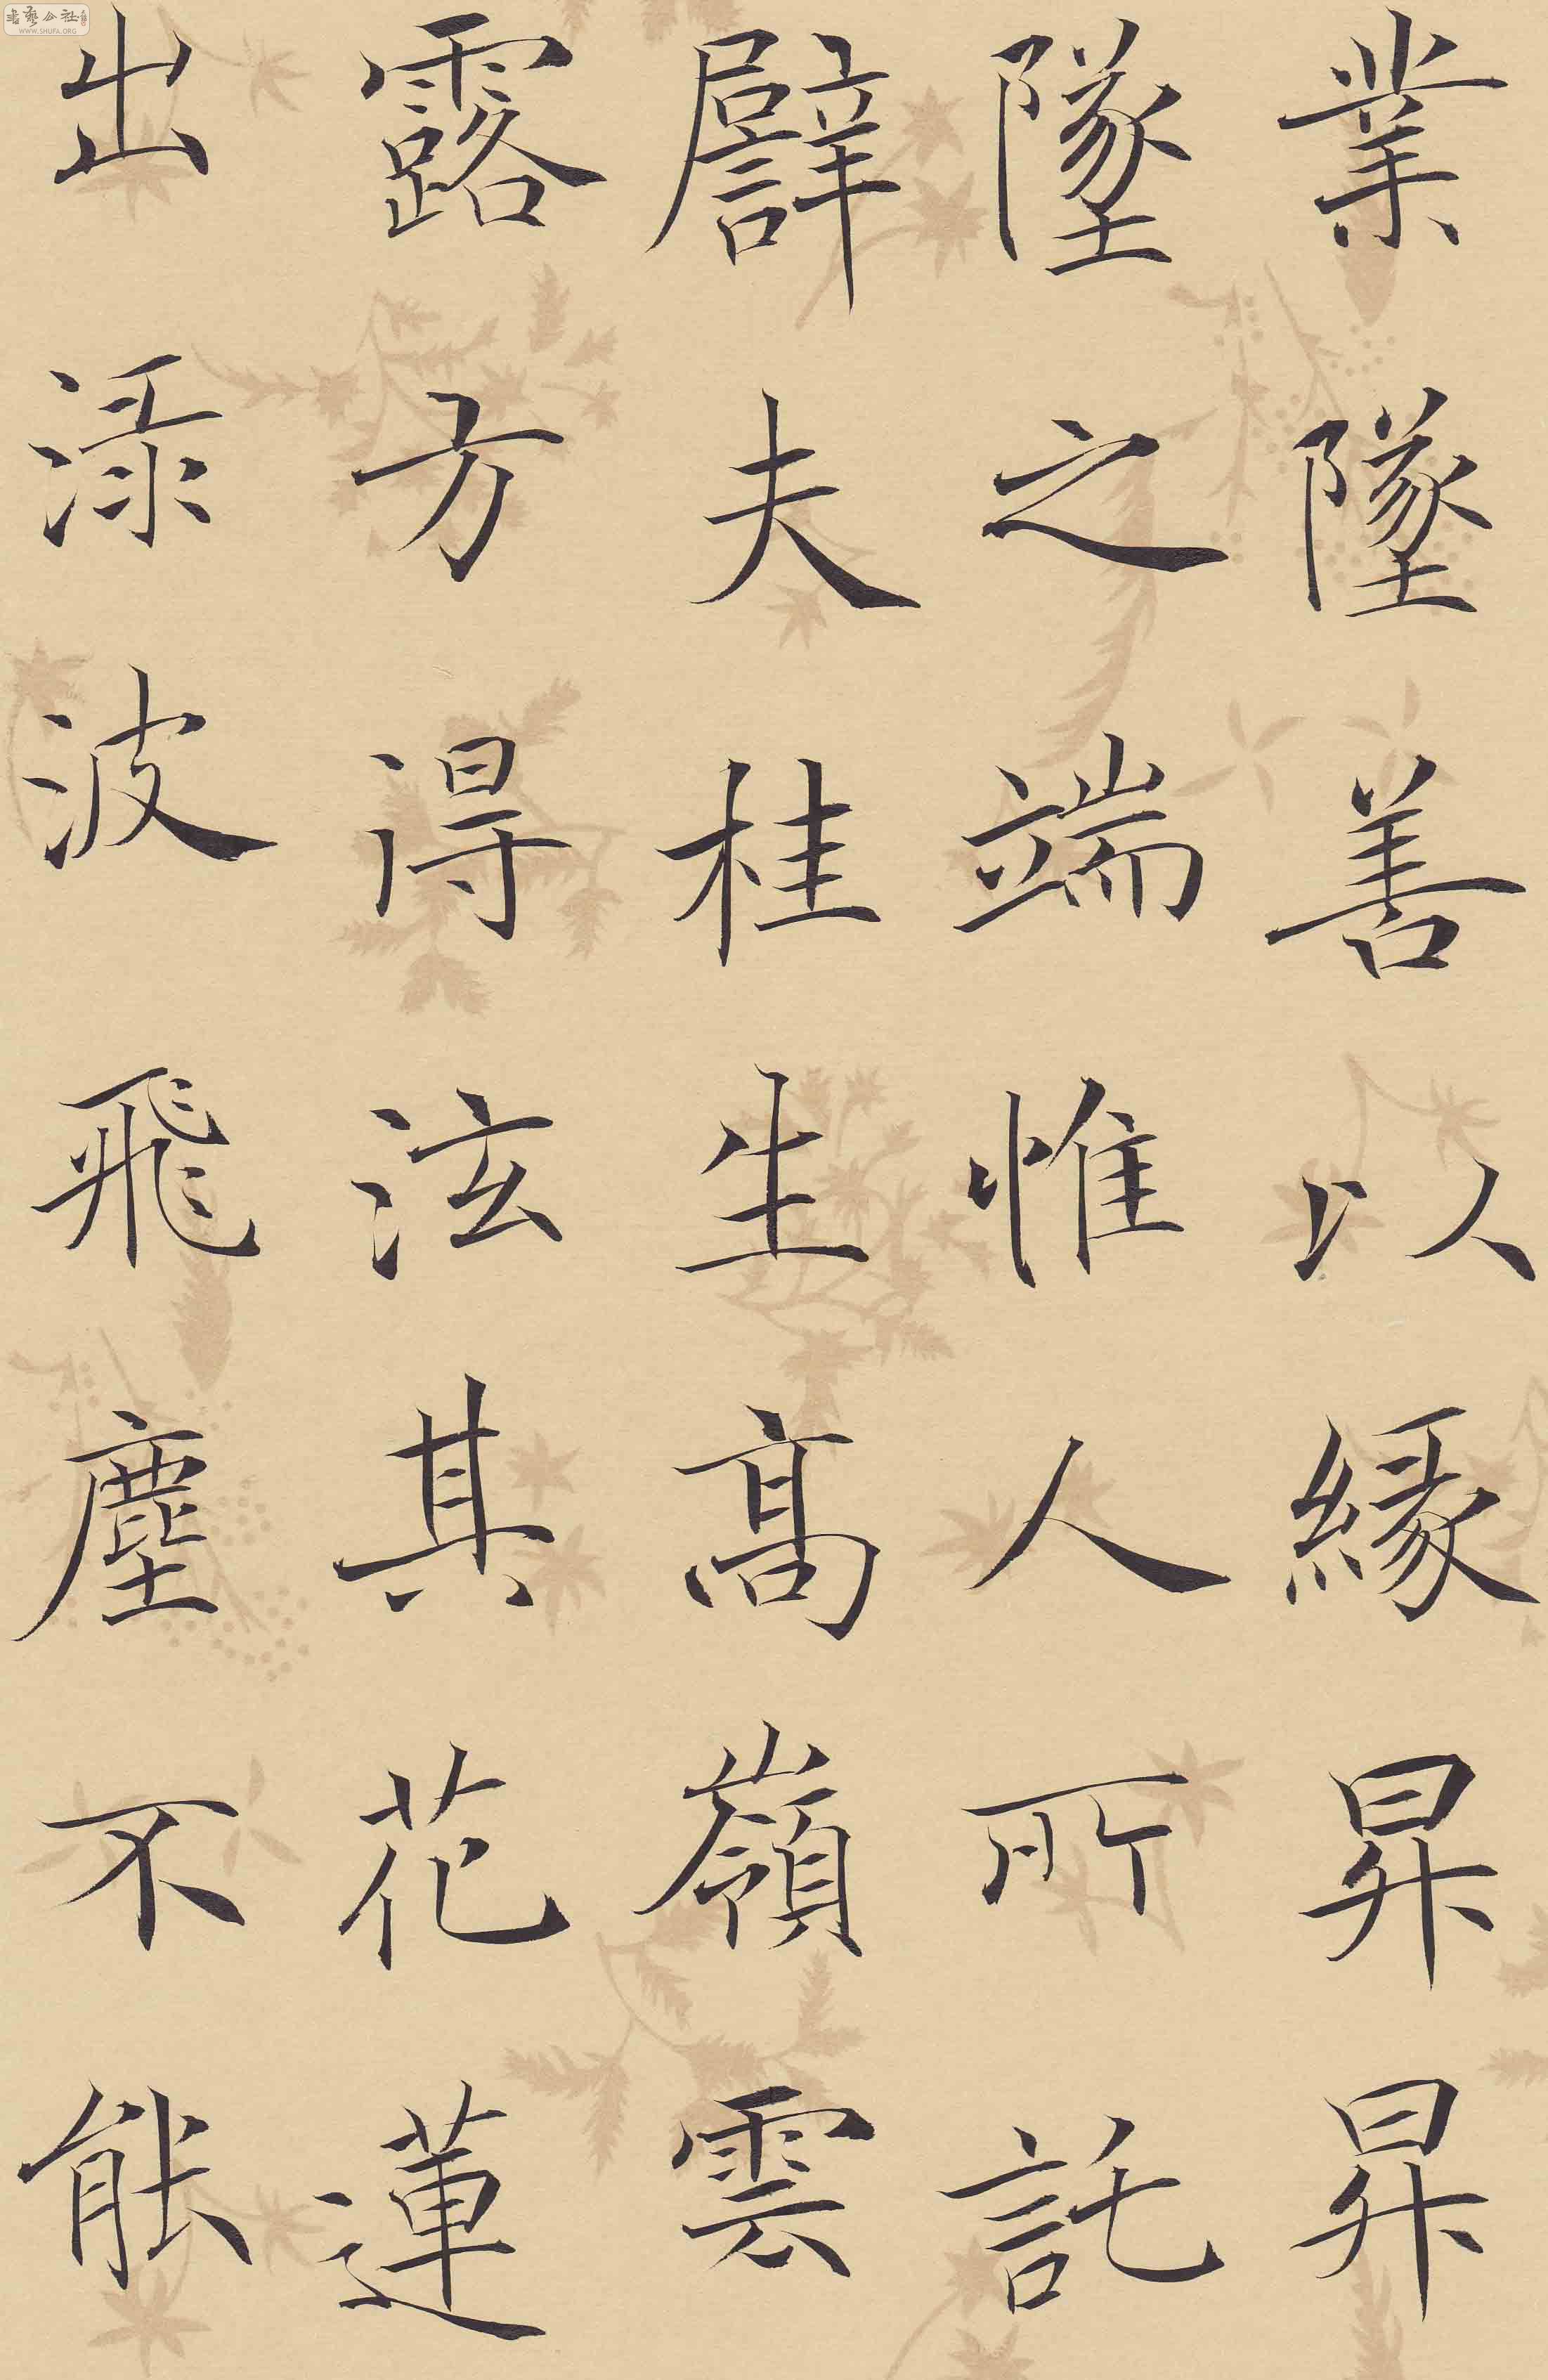 業墜善以緣昇昇
墜之端惟人所託
譬夫桂生高嶺雲
露方得泫其花蓮
出淥波飛塵不能
書藝公社
WWW.SHUFA.ORG